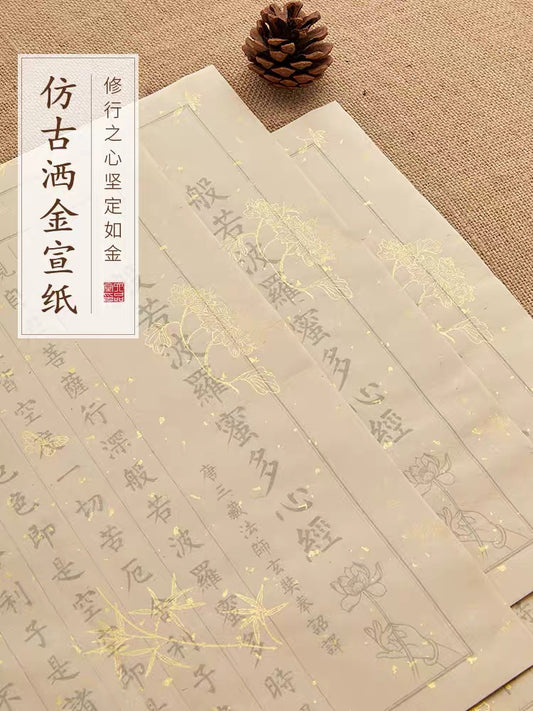 仿古洒金宣纸
修行之心坚定如金
般若波羅蜜多心經
般若波羅蜜多心經
唐三藏法師玄奘奉詔譯
菩薩行深般若波羅蜜多時
皆空度一切苦厄舍利子
色即是空空即
利子是諸